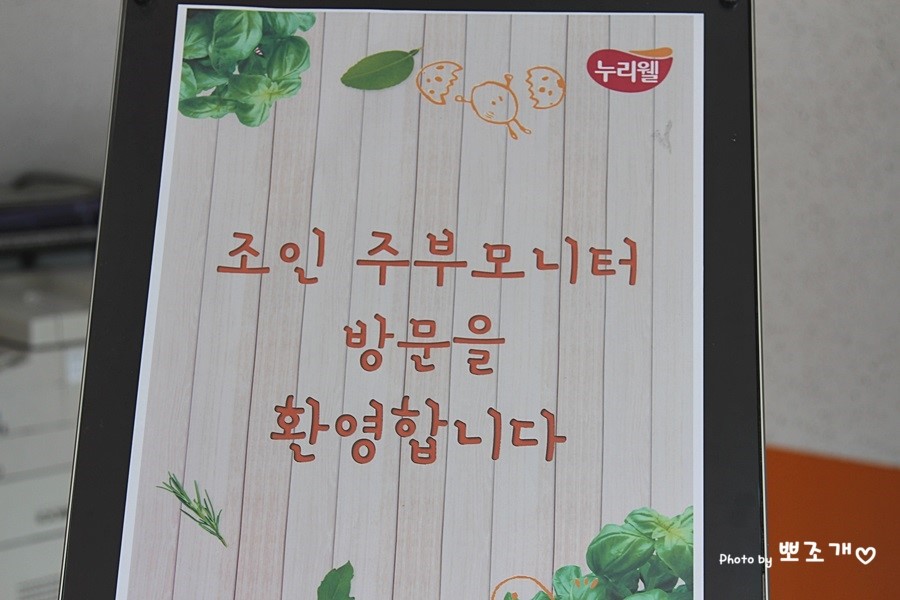 누리웰
조인 주부모니터
방문을
환영합니다
Photo by 뽀조개♡